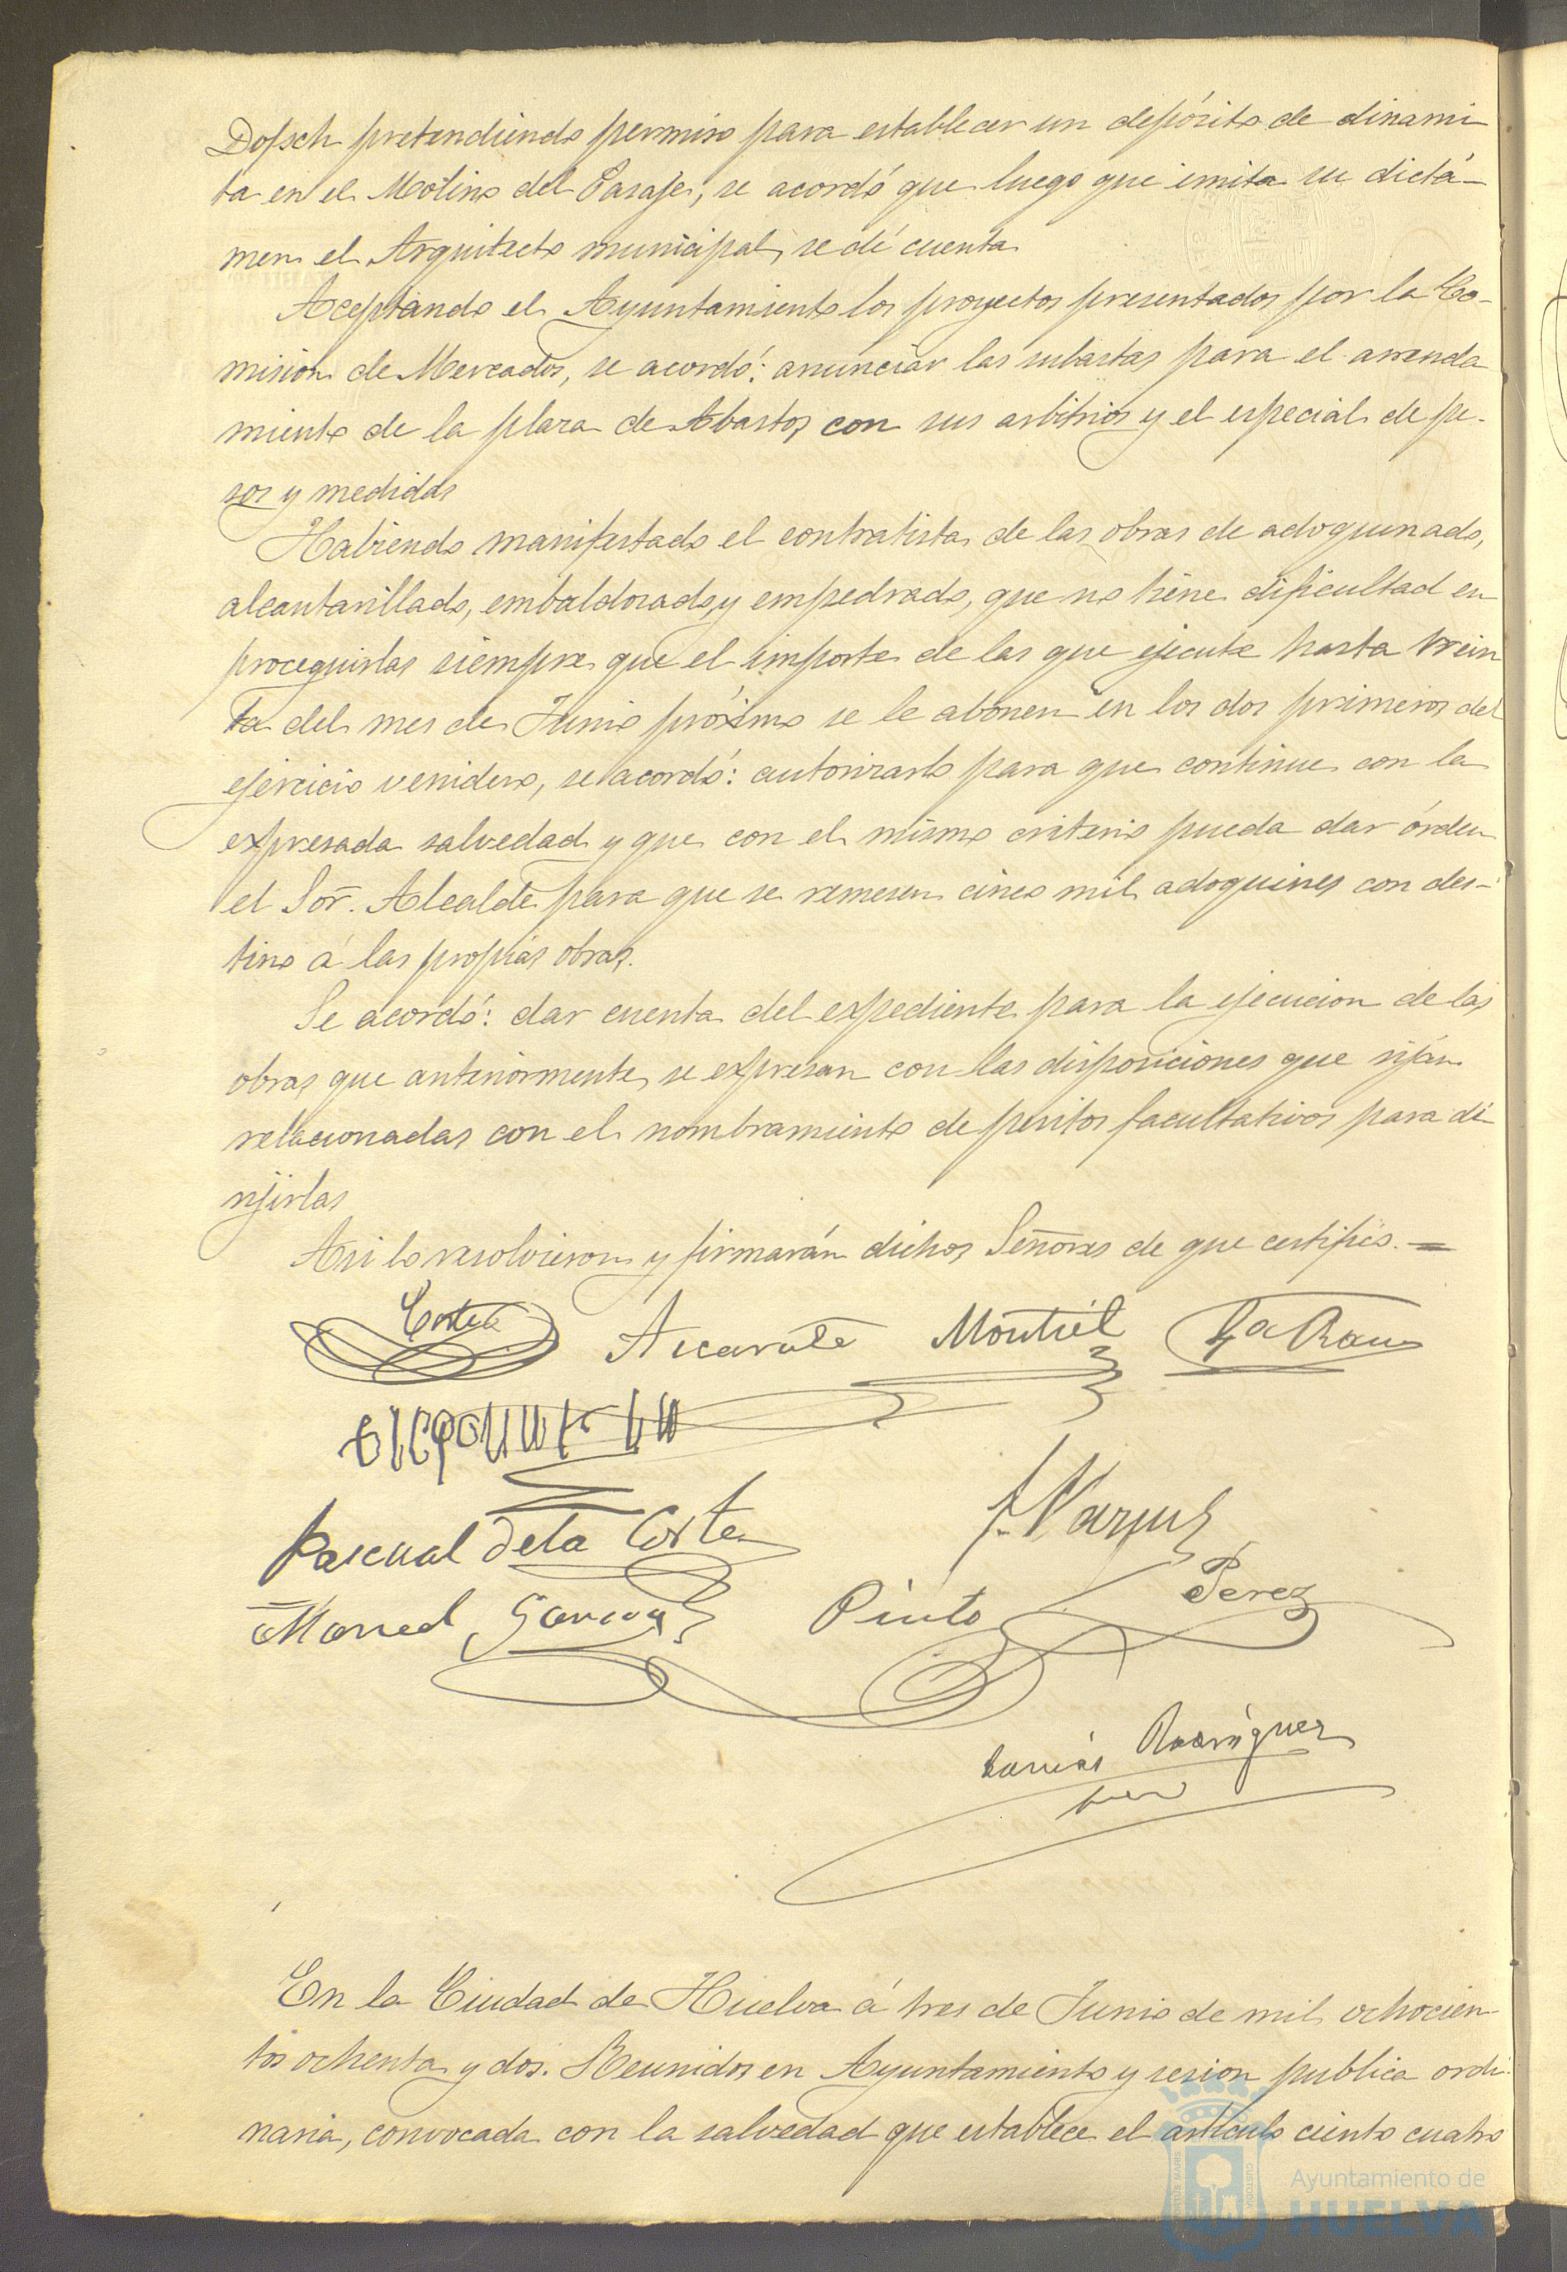 Dofsch pretendiendo permiso para establecer un depósito de dinami
ta en el Molino del Pasaje, se acordó que luego que emita su dictá-
men el Arquitecto municipal, se dé cuenta
Aceptando el Ayuntamiento los proyectos presentados por la Co-
mision de Mercados, se acordó: anunciar las subastas para el arrenda
miento de la plaza de Abastos, con sus arbitrios y el especial de pe-
sos y medidas
Habiendo manifestado el contratista de las obras de adoquinado,
alcantarillado, embaldosado, y empedrado, que no tiene dificultad en
proceguirlas siempre que el importe de las que ejecute hasta trein
ta del mes de Junio próximo se le abonen en los dos primeros del
ejercicio venidero, se acordó: autorizarlo para que continue con la
expresada salvedad y que con el mismo criterio pueda dar órden
el Sor. Alcalde para que se remesen cinco mil adoquines con des-
tino á las propias obras.
Se acordó: dar cuenta del expediente para la ejecucion de las
obras que anteriormente se expresan con las disposiciones que rijan
relacionadas con el nombramiento de peritos facultativos para di
rijirlas
Asi lo resolvieron y firmarán dichos Señores de que certifico. =
Cortes Azcarate Montiel La Rosa
Pascual de la Corte J. Vargas
Manuel Garcia Pinto Perez
Tomás Rodriguez
En la Ciudad de Huelva á tres de Junio de mil ochocien-
tos ochenta y dos. Reunidos en Ayuntamiento y sesion publica ordi
naria, convocada con la salvedad que establece el artículo ciento cuatro
Ayuntamiento de
HUELVA